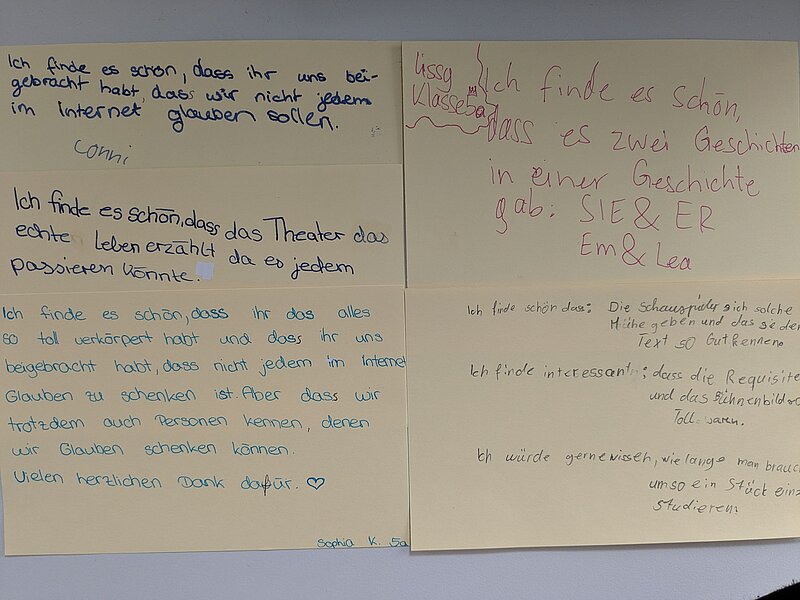 Ich finde es schön, dass ihr uns bei-
gebracht habt, dass wir nicht jedem
im Internet glauben sollen.
Conni
Ich finde es schön, dass das Theater das
echte Leben erzählt da es jedem
passieren könnte.
Ich finde es schön, dass ihr das alles
so toll verkörpert habt und dass ihr uns
beigebracht habt, dass nicht jedem im Internet
Glauben zu schenken ist. Aber dass wir
trotzdem auch Personen kennen, denen
wir Glauben schenken können.
Vielen herzlichen Dank dafür. ♡
Sophia K. 5a
Lissy
Klasse 5a
Ich finde es schön,
dass es zwei Geschichten
in einer Geschichte
gab: SIE & ER
Em & Lea
Ich finde schön das: Die Schauspieler sich solche
Mühe geben und das sie den
Text so Gut kennen.
Ich finde interessant: dass die Requisite
und das Bühnenbild so
Toll waren.
Ich würde gerne wissen, wie lange man brauch
um so ein Stück einz
studieren.